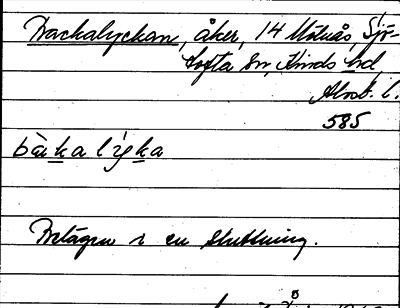 Backalyckan, åker, 14 Mölnås, Sjö-
tofta sn, Kinds hd,
Älvsb. l.
585
bàkalýka
Belägen i en sluttning.